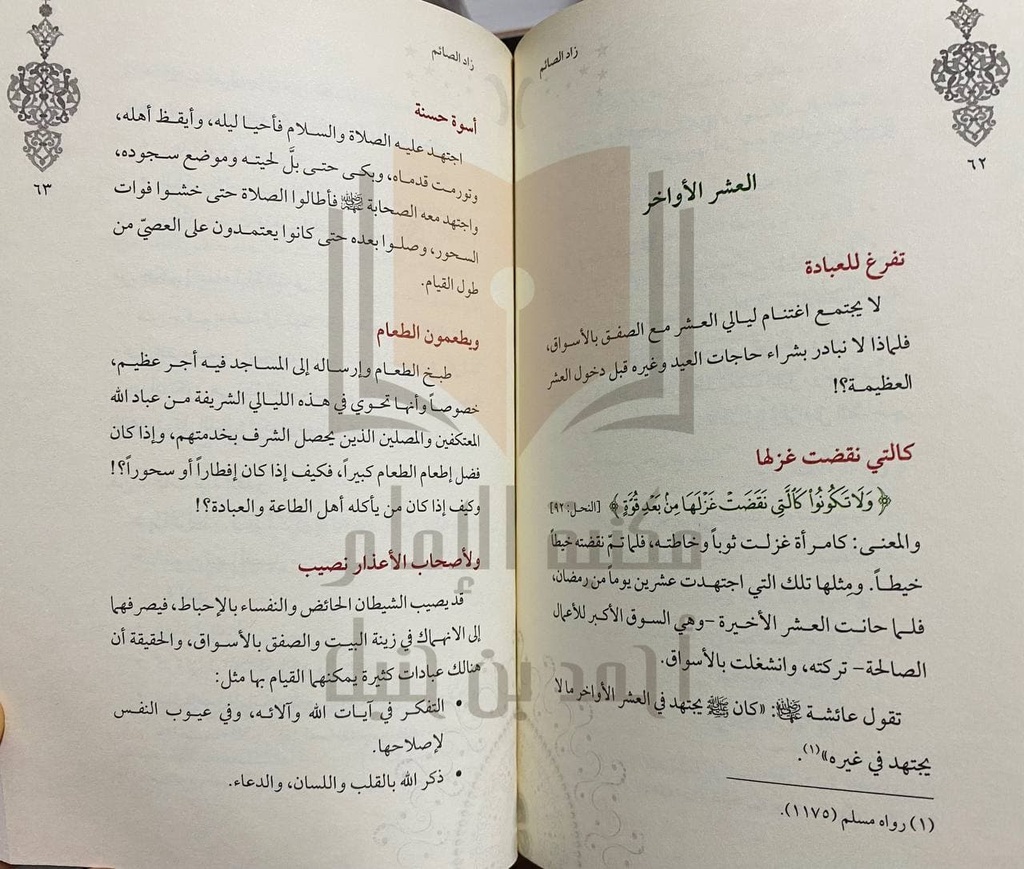 زاد الصائم
٦٢
العشر الأواخر
تفرغ للعبادة
لا يجتمع اغتنام ليالي العشر مع الصفق بالأسواق،
فلماذا لا نبادر بشراء حاجات العيد وغيره قبل دخول العشر
العظيمة؟!
كالتي نقضت غزلها
﴿ وَلَا تَكُونُوا۟ كَٱلَّتِى نَقَضَتْ غَزْلَهَا مِنۢ بَعْدِ قُوَّةٍ ﴾ [النحل: ٩٢]
والمعنى: كامرأة غزلت ثوباً وخاطته، فلما تمّ نقضته خيطاً
خيطاً. ومِثلها تلك التي اجتهدت عشرين يوماً من رمضان،
فلما حانت العشر الأخيرة -وهي السوق الأكبر للأعمال
الصالحة- تركته، وانشغلت بالأسواق.
تقول عائشة رضي الله عنها: «كان ﷺ يجتهد في العشر الأواخر ما لا
يجتهد في غيره»(١).
(١) رواه مسلم (١١٧٥).
زاد الصائم
٦٣
أسوة حسنة
اجتهد عليه الصلاة والسلام فأحيا ليله، وأيقظ أهله،
وتورمت قدماه، وبكى حتى بلَّ لحيته وموضع سجوده،
واجتهد معه الصحابة رضي الله عنهم فأطالوا الصلاة حتى خشوا فوات
السحور، وصلوا بعده حتى كانوا يعتمدون على العصيّ من
طول القيام.
ويطعمون الطعام
طبخ الطعام وإرساله إلى المساجد فيه أجر عظيم،
خصوصاً وأنها تحوي في هذه الليالي الشريفة من عباد الله
المعتكفين والمصلين الذين يحصل الشرف بخدمتهم، وإذا كان
فضل إطعام الطعام كبيراً، فكيف إذا كان إفطاراً أو سحوراً؟!
وكيف إذا كان من يأكله أهل الطاعة والعبادة؟!
ولأصحاب الأعذار نصيب
قد يصيب الشيطان الحائض والنفساء بالإحباط، فيصرفهما
إلى الانهماك في زينة البيت والصفق بالأسواق، والحقيقة أن
هنالك عبادات كثيرة يمكنهما القيام بها مثل:
• التفكر في آيات الله وآلائه، وفي عيوب النفس
لإصلاحها.
• ذكر الله بالقلب واللسان، والدعاء.
مكتبة الإمام
أحمد بن حنبل